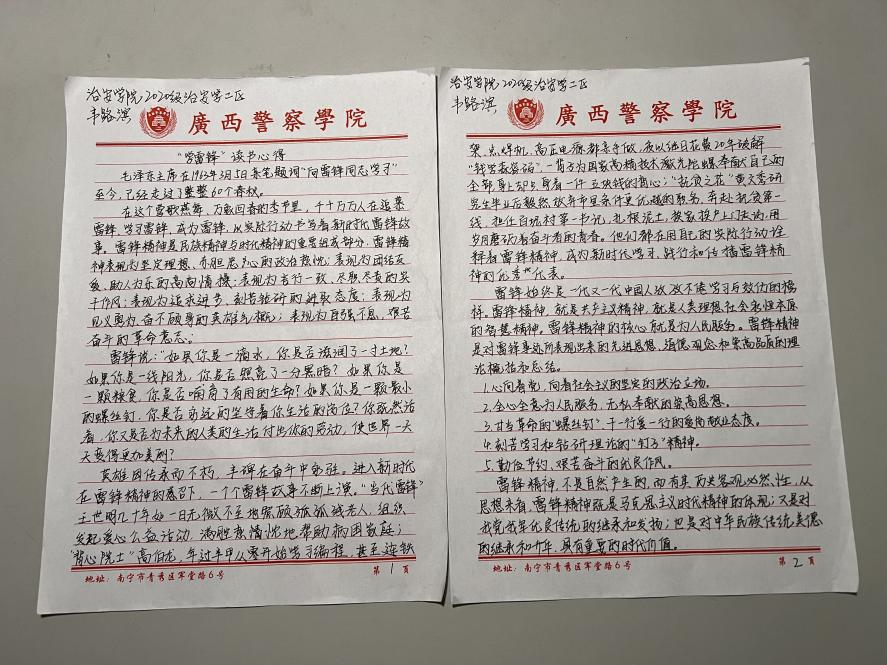 治安学院2020级治安学二区
韦路滨
廣西警察學院
"学雷锋"读书心得
毛泽东主席在1963年3月5日亲笔题词"向雷锋同志学习"
至今,已经走过了整整60个春秋。
在这个莺歌燕舞、万象回春的季节里,千千万万人在追慕
雷锋、学习雷锋、成为雷锋,从实际行动书写着新时代雷锋故
事。雷锋精神是民族精神与时代精神的重要组成部分,雷锋精
神表现为坚定理想、赤胆忠心的政治本色;表现为团结友
爱、助人为乐的高尚情操;表现为言行一致、尽职尽责的实
干作风;表现为追求进步、刻苦钻研的进取态度;表现为
见义勇为、奋不顾身的英雄气概;表现为自强不息、艰苦
奋斗的革命意志。
雷锋说:"如果你是一滴水,你是否滋润了一寸土地?
如果你是一线阳光,你是否照亮了一分黑暗?如果你是
一颗粮食,你是否哺育了有用的生命?如果你是一颗最小
的螺丝钉,你是否永远的坚守着你生活的岗位?你既然活
着,你又是否为未来的人类的生活付出你的劳动,使世界一天
天变得更加美丽?
英雄因传承而不朽,丰碑在奋斗中弥坚。进入新时代
在雷锋精神的感召下,一个个雷锋故事不断上演。"当代雷锋"
王世明几十年如一日无微不至地照顾孤残老人,组织
发起爱心公益活动,满腔热情地帮助病困家庭;
"背心院士"高伯龙,年过半甲从零开始学习编程,甚至连铁
地址:南宁市青秀区军堂路6号
第1頁
治安学院2020级治安学二区
韦路滨
廣西警察學院
架、点焊机、高压电源都亲手做,夜以继日花费20年破解
"钱学森密码",一辈子为国家高精技术激光陀螺奉献自己的
全部,身上却只穿着一件五块钱的背心;"扶贫之花"黄文秀研
究生毕业后毅然放弃市里条件更优越的职务,奔赴扶贫第一
线,担任百坭村第一书记,扎根泥土,挨家挨户上门走访,用
岁月磨砺着奋斗着的青春。他们都在用自己的实际行动诠
释着雷锋精神,成为新时代学习、践行和传播雷锋精
神的优秀代表。
雷锋始终是一代又一代中国人孜孜不倦学习与效仿的榜
样。雷锋精神,就是共产主义精神,就是人类理想社会永恒本原
的智慧精神。雷锋精神的核心就是为人民服务。雷锋精神
是对雷锋事迹所表现出来的先进思想、道德观念和崇高品质的理
论概括和总结。
1.心向着党,向着社会主义的坚定的政治立场。
2.全心全意为人民服务,无私奉献的崇高思想。
3.甘当革命的"螺丝钉",干一行爱一行的爱岗敬业态度。
4.刻苦学习和钻研理论的"钉子"精神。
5.勤俭节约,艰苦奋斗的优良作风。
雷锋精神,不是自然产生的,而有其历史客观必然性,从
思想来看,雷锋精神既是马克思主义时代精神的体现;又是对
我党我军优良传统的继承和发扬;也是对中华民族传统美德
的继承和升华,具有重要的时代价值。
地址:南宁市青秀区军堂路6号
第2頁